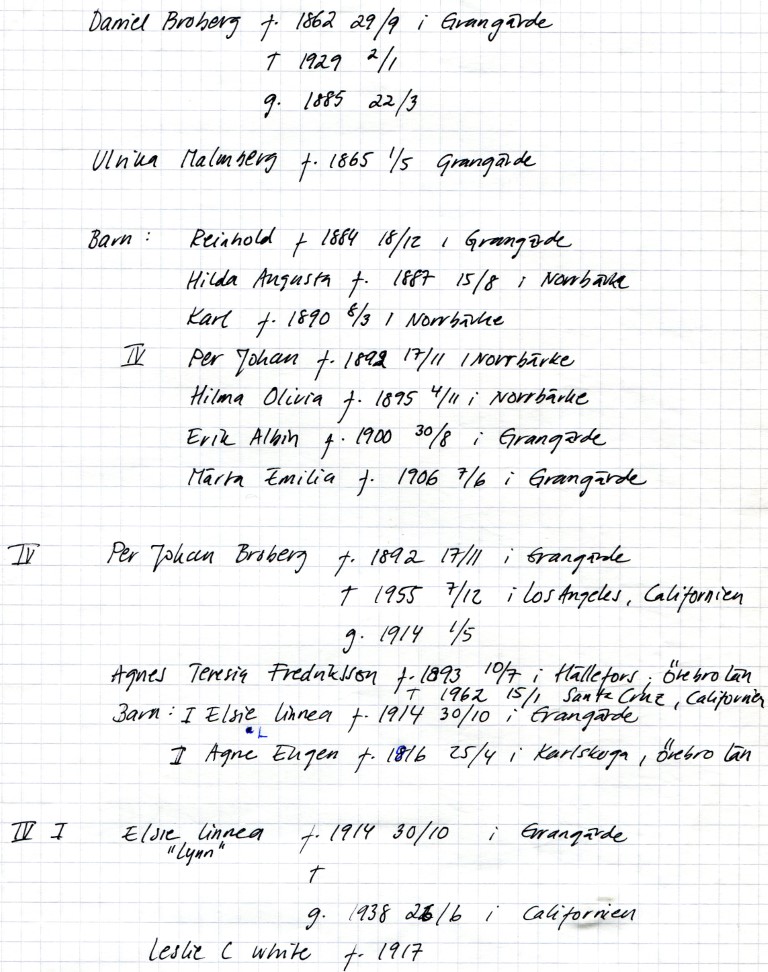 Daniel Broberg f. 1862 29/9 i Grangärde
† 1929 2/1
g. 1885 22/3
Ulrika Malmberg f. 1865 1/5 Grangärde
Barn: Reinhold f 1884 18/12 i Grangärde
Hilda Augusta f. 1887 15/8 i Norrbärke
Karl f. 1890 8/3 i Norrbärke
IV Per Johan f. 1892 17/11 i Norrbärke
Hilma Olivia f. 1895 4/11 i Norrbärke
Erik Albin f. 1900 30/8 i Grangärde
Märta Emilia f. 1906 7/6 i Grangärde
IV Per Johan Broberg f. 1892 17/11 i Grangärde
† 1955 7/12 i Los Angeles, Californien
g. 1914 1/5
Agnes Teresia Fredriksson f. 1893 10/7 i Hällefors, Örebro län
† 1962 15/1 Santa Cruz, Californien
Barn: I Elsie Linnea f. 1914 30/10 i Grangärde
II Agne Eugen f. 1816 25/4 i Karlskoga, Örebro län
IV I Elsie Linnea f. 1914 30/10 i Grangärde
"Lynn"
†
g. 1938 26/6 i Californien
Leslie C White f. 1917